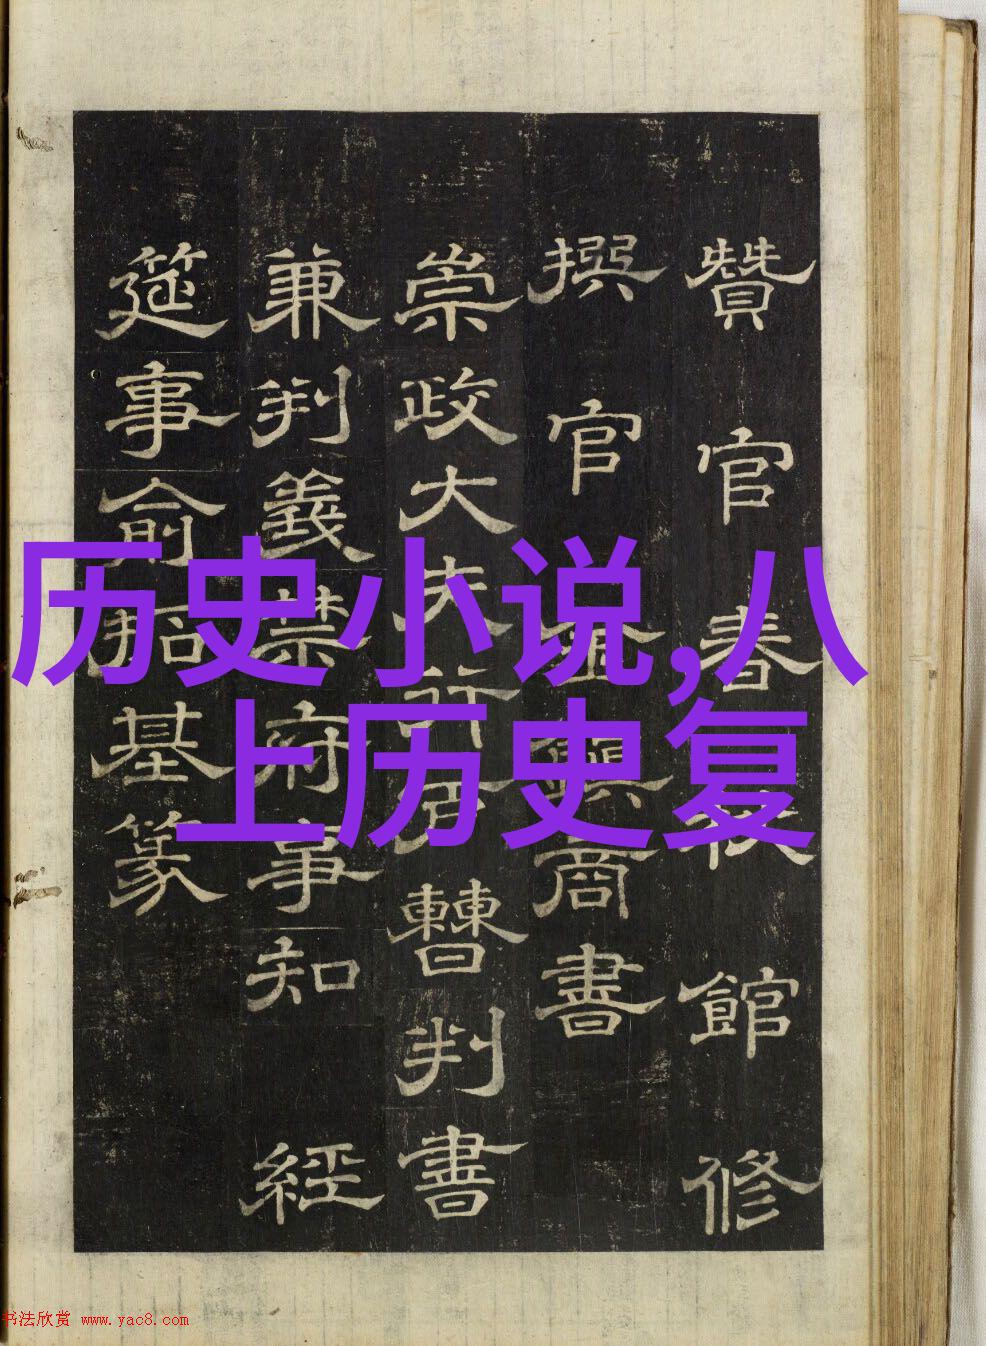 贊官春秋館修
撰官金興商書
崇政大夫行戶曹判書
兼判義禁府事知經
筵事俞拓基篆
历史小说,八
上历史复
书法欣赏 www.yac8.com